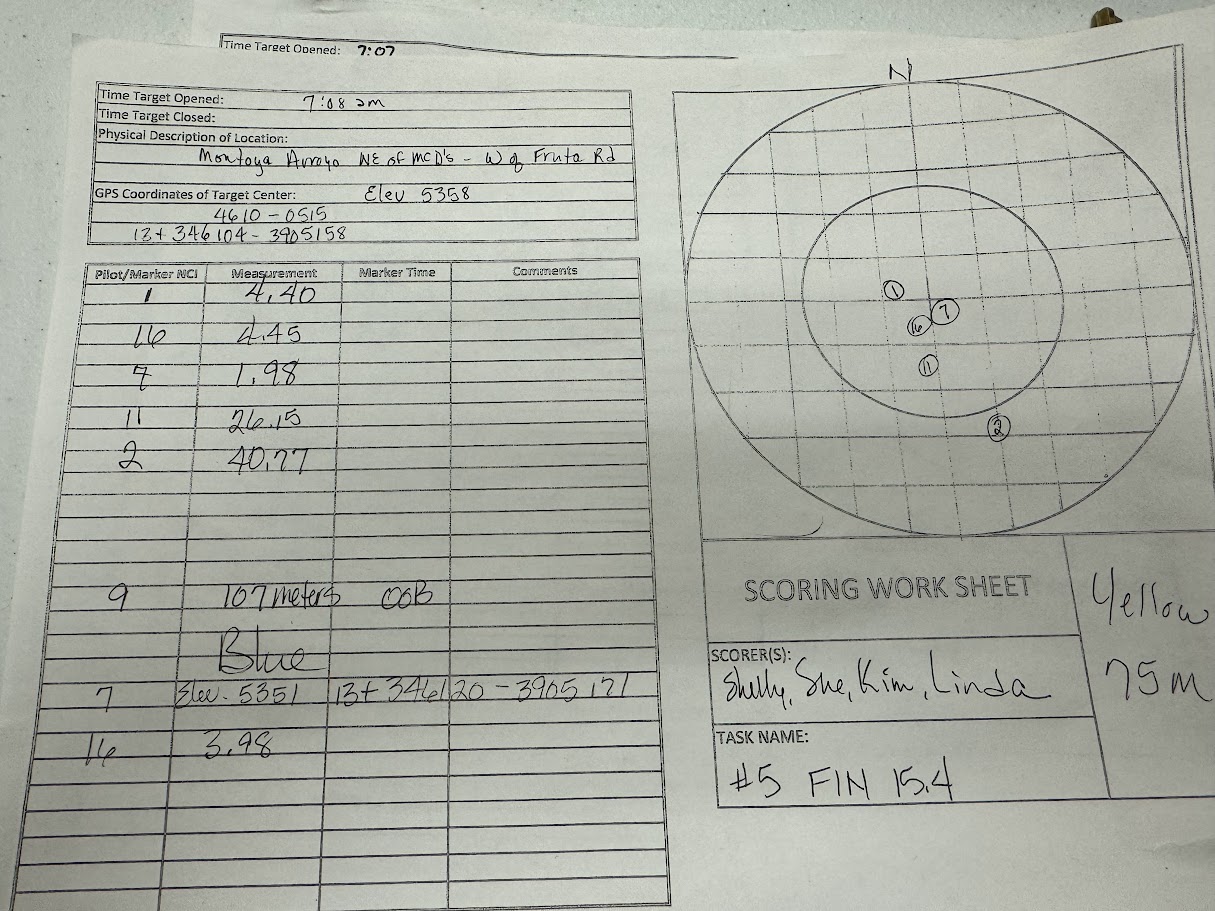 Time Target Opened: 7:07
Time Target Opened: 7:08 am
Time Target Closed:
Physical Description of Location:
Montoya Arroyo NE of McD's - W of Fruta Rd
GPS Coordinates of Target Center: Elev 5358
4610 - 0515
13t 346104 - 3905158
Pilot/Marker NCI Measurement Marker Time Comments
1 4.40
16 4.45
7 1.98
11 26.15
2 40.77
9 107 meters OOB
Blue
7 Elev. 5351 13t 346120 - 3905171
16 3.98
N
1
16 7
11
2
SCORING WORK SHEET
Yellow
75m
SCORER(S):
Shelly, Sue, Kim, Linda
TASK NAME:
#5 FIN 15.4